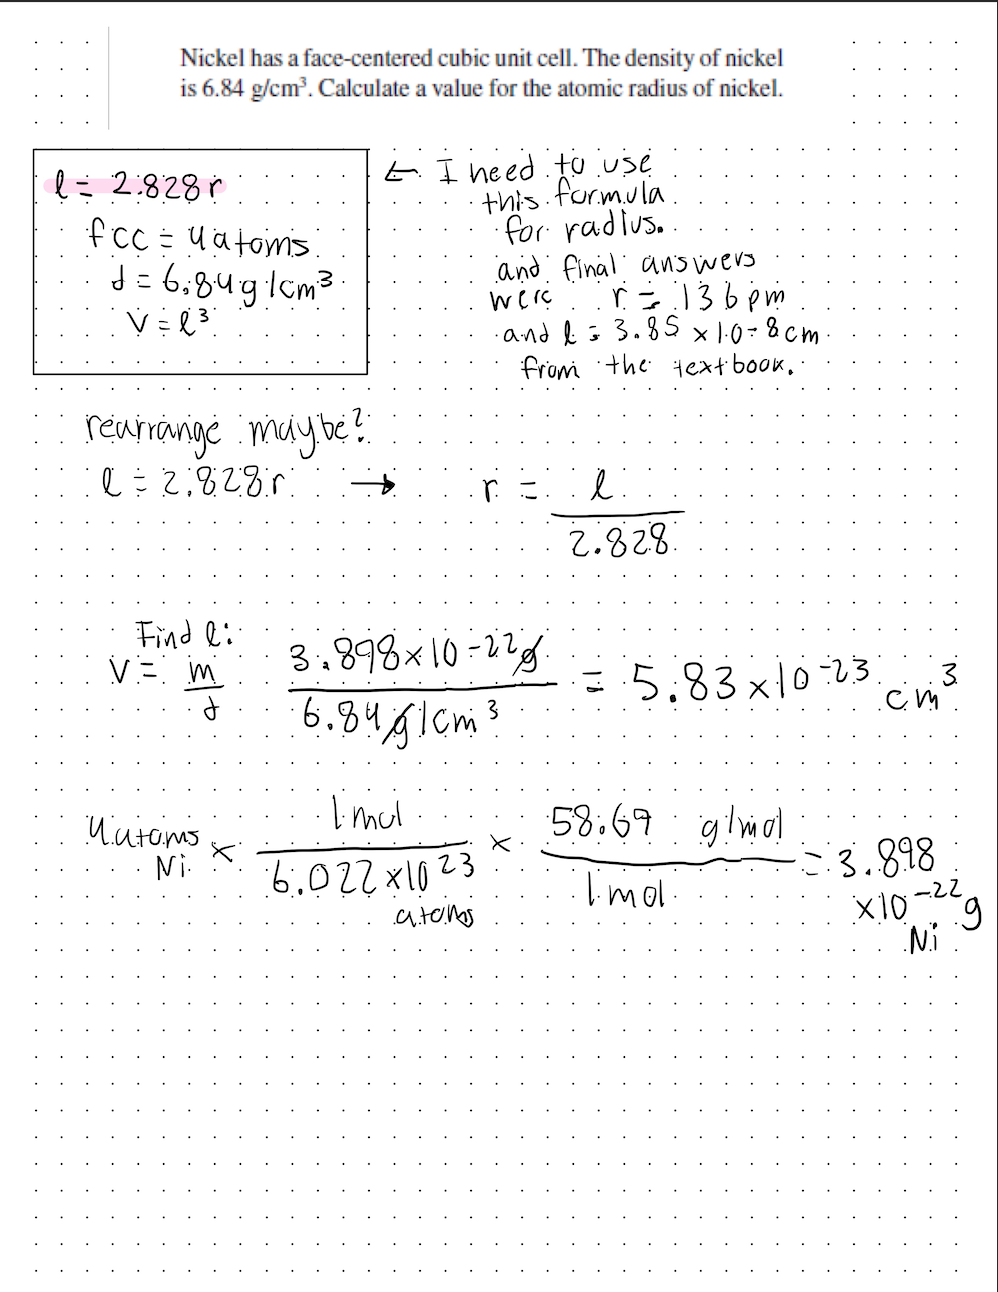 Nickel has a face-centered cubic unit cell. The density of nickel
is 6.84 g/cm³. Calculate a value for the atomic radius of nickel.
l = 2.828r
fcc = 4 atoms
d = 6.84 g/cm³
V = l³
← I need to use
this formula
for radius.
and final answers
were r = 136 pm
and l = 3.85 x 10-8 cm
from the textbook.
rearrange maybe?
l = 2.828r → r = l
2.828
Find l:
V = m/d 3.898 x 10⁻²² g / 6.84 g/cm³ = 5.83 x 10⁻²³ cm³
4 atoms Ni x 1 mol / 6.022 x 10²³ atoms x 58.69 g/mol / 1 mol = 3.898 x 10⁻²² g Ni